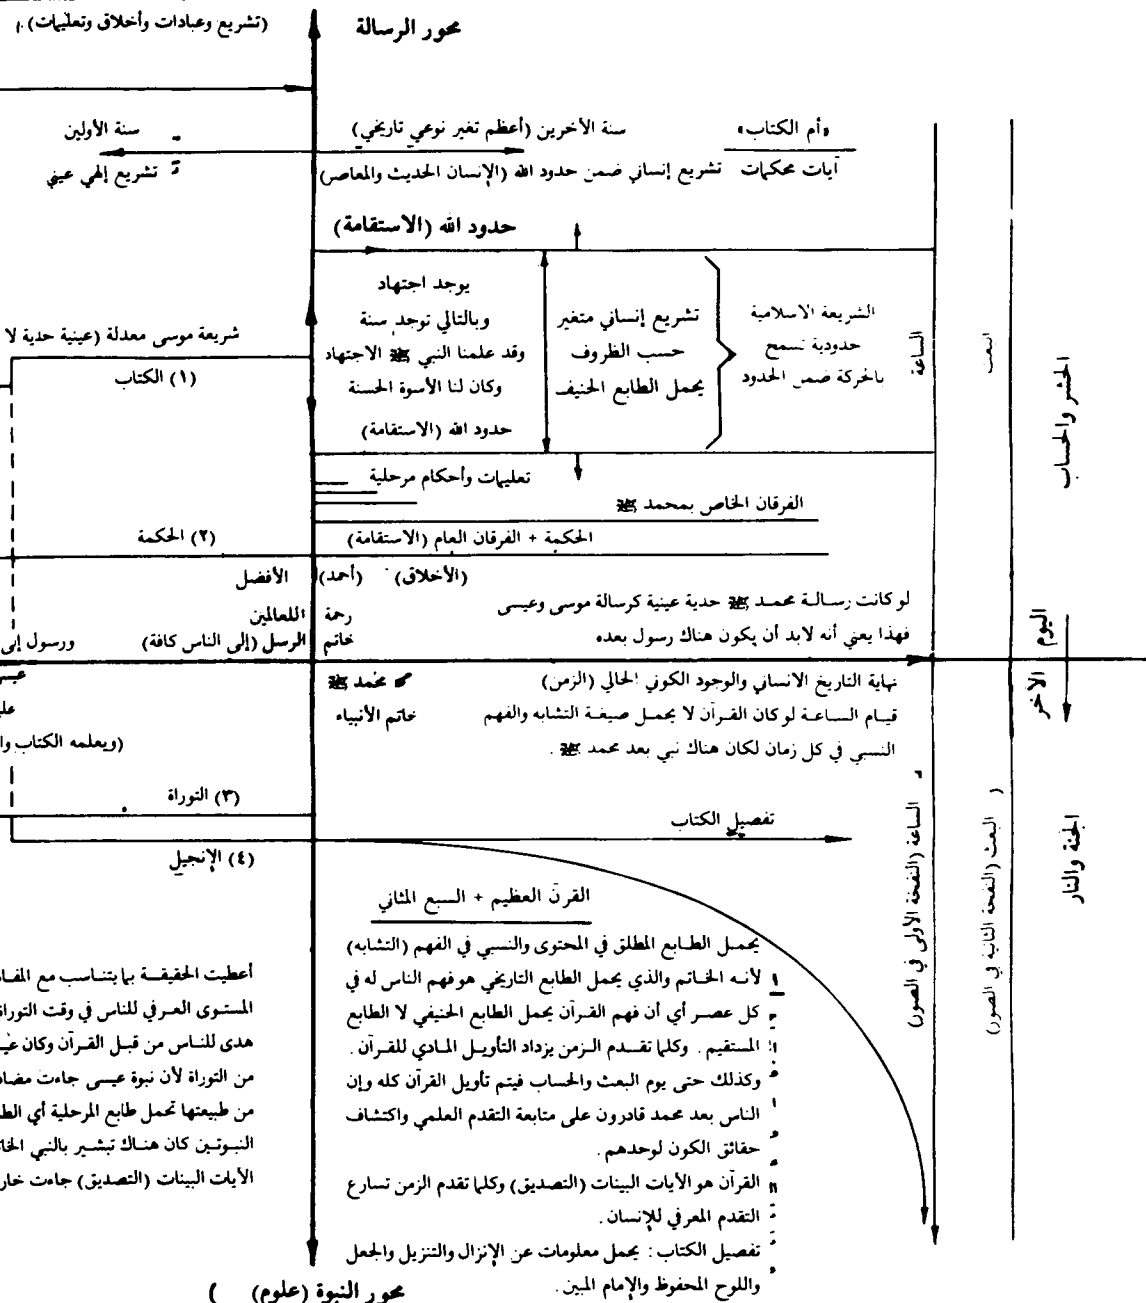 محور الرسالة
(تشريع وعبادات وأخلاق وتعليمات)
«أم الكتاب»
سنة الآخرين (أعظم تغير نوعي تاريخي)
سنة الأولين
آيات محكمات
تشريع إنساني ضمن حدود الله (الإنسان الحديث والمعاصر)
تشريع إلهي عيني
حدود الله (الاستقامة)
يوجد اجتهاد
وبالتالي توجد سنة
وقد علمنا النبي ﷺ الاجتهاد
وكان لنا الأسوة الحسنة
حدود الله (الاستقامة)
تشريع إنساني متغير
حسب الظروف
يحمل الطابع الحنيف
الشريعة الاسلامية
حدودية تسمح
بالحركة ضمن الحدود
الساعة
البعث
الحشر والحساب
شريعة موسى معدلة (عينية حدية لا
(١) الكتاب
تعليمات وأحكام مرحلية
الفرقان الخاص بمحمد ﷺ
الحكمة + الفرقان العام (الاستقامة)
(٢) الحكمة
(الأخلاق) (أحمد) الأفضل
رحمة اللعالمين
خاتم الرسل (إلى الناس كافة)
ورسول إلى
لو كانت رسالة محمد ﷺ حدية عينية كرسالة موسى وعيسى
فهذا يعني أنه لابد أن يكون هناك رسول بعده
اليوم الآخر
نهاية التاريخ الانساني والوجود الكوني الحالي (الزمن)
محمد ﷺ
خاتم الأنبياء
قيام الساعة لو كان القرآن لا يحمل صيغة التشابه والفهم
النسبي في كل زمان لكان هناك نبي بعد محمد ﷺ .
(ويعلمه الكتاب وا
(٣) التوراة
(٤) الإنجيل
تفصيل الكتاب
الساعة (النفخة الأولى في الصور)
البعث (النفخة الثانية في الصور)
الجنة والنار
القرن العظيم + السبع المثاني
يحمل الطابع المطلق في المحتوى والنسبي في الفهم (التشابه)
لأنه الخاتم والذي يحمل الطابع التاريخي هو فهم الناس له في
كل عصر أي أن فهم القرآن يحمل الطابع الحنيفي لا الطابع
المستقيم . وكلما تقدم الزمن يزداد التأويل المادي للقرآن .
وكذلك حتى يوم البعث والحساب فيتم تأويل القرآن كله وإن
الناس بعد محمد قادرون على متابعة التقدم العلمي واكتشاف
حقائق الكون لوحدهم .
القرآن هو الآيات البينات (التصديق) وكلما تقدم الزمن تسارع
التقدم المعرفي للإنسان .
تفصيل الكتاب : يحمل معلومات عن الإنزال والتنزيل والجعل
واللوح المحفوظ والإمام المبين .
أعطيت الحقيقة بما يتناسب مع
المستوى العرفي للناس في وقت
هدى للناس من قبل القرآن وكان
من التوراة لأن نبوة عيسى جاءت
من طبيعتها تحمل طابع المرحلية أي
النبوتين كان هناك تبشير بالنبي
الآيات البينات (التصديق) جاءت
محور النبوة (علوم)